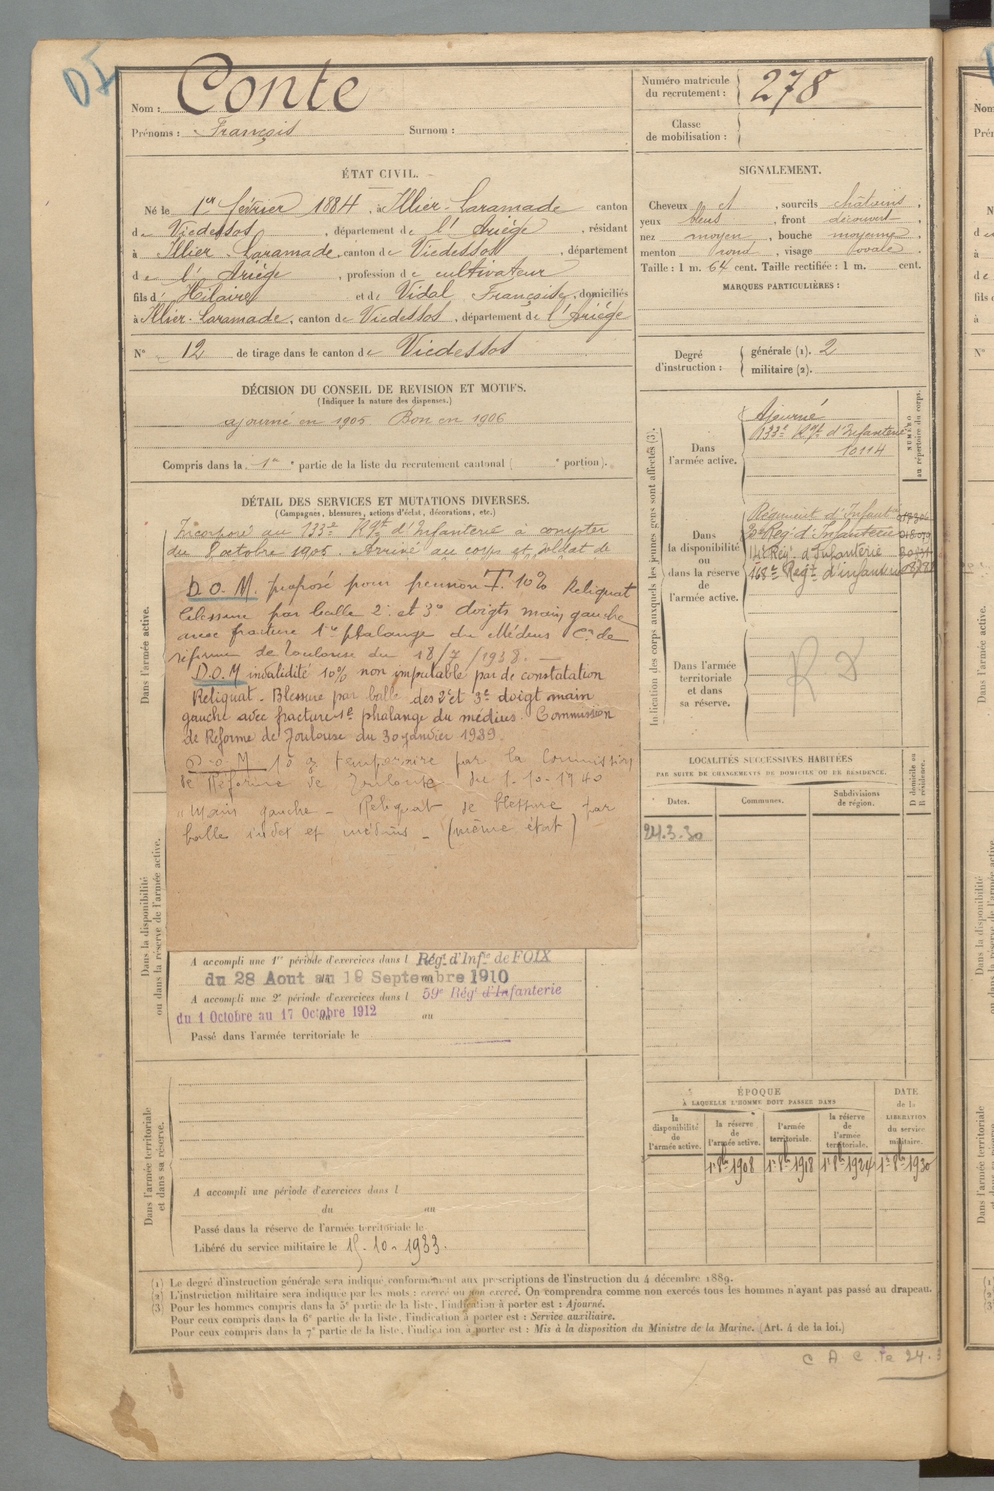 DI
Nom : Conte
Prénoms : François Surnom :
Numéro matricule du recrutement : 278
Classe de mobilisation :
ÉTAT CIVIL.
Né le 1er février 1884, à Illier-Laramade canton
de Vicdessos, département de l'Ariège, résidant
à Illier-Laramade, canton de Vicdessos, département
de l'Ariège, profession de cultivateur
fils d' Hilaire et de Vidal Françoise, domiciliés
à Illier-Laramade, canton de Vicdessos, département de l'Ariège
N° 12 de tirage dans le canton de Vicdessos
SIGNALEMENT.
Cheveux et, sourcils châtains,
yeux bleus, front découvert,
nez moyen, bouche moyenne,
menton rond, visage ovale.
Taille : 1 m. 64 cent. Taille rectifiée : 1 m. cent.
MARQUES PARTICULIÈRES :
Degré d'instruction : générale (1). 2
militaire (2).
DÉCISION DU CONSEIL DE REVISION ET MOTIFS.
(Indiquer la nature des dispenses.)
ajourné en 1905 Bon en 1906
Compris dans la 1re partie de la liste du recrutement cantonal ( e portion).
DÉTAIL DES SERVICES ET MUTATIONS DIVERSES.
(Campagnes, blessures, actions d'éclat, décorations, etc.)
Incorporé au 133e Rgt d'Infanterie à compter
du 8 octobre 1906. Arrivé au corps et soldat de
D.O.M. proposé pour pension T. 10% Reliquat
blessure par balle 2e et 3e doigts main gauche
avec fracture 1re phalange du Médius Con de
réforme de Toulouse du 18/7/1938.
D.O.M invalidité 10% non imputable par de constatation
Reliquat - Blessure par balle des 2e et 3e doigt main
gauche avec fracture 1e phalange du médius. Commission
de Réforme de Toulouse du 30 janvier 1939.
D.O.M 10% temporaire par la Commission
de Réforme de Toulouse du 1-10-1940
"Main gauche - Reliquat de blessure par
balle index et médius - (même état)
Dans l'armée active.
Dans la disponibilité ou dans la réserve de l'armée active.
A accompli une 1re période d'exercices dans l Rég. d'Infie de FOIX
du 28 Aout au 19 Septembre 1910
A accompli une 2e période d'exercices dans l 59e Rég' d'Infanterie
du 1 Octobre au 17 Octobre 1912 au
Passé dans l'armée territoriale le
Dans l'armée territoriale et dans sa réserve.
A accompli une période d'exercices dans l
du au
Passé dans la réserve de l'armée territoriale le
Libéré du service militaire le 15-10-1933.
Indication des corps auxquels les jeunes gens sont affectés (3).
NUMÉRO au répertoire du corps.
Dans l'armée active.
Ajourné
133e Rgt d'Infanterie
10114
Dans la disponibilité ou dans la réserve de l'armée active.
Régiment d'Infant
Rég' d'Infanterie
14e Rég. d'Infanterie
168e Regt d'infanterie
Dans l'armée territoriale et dans sa réserve.
LOCALITÉS SUCCESSIVES HABITÉES
PAR SUITE DE CHANGEMENTS DE DOMICILE OU DE RÉSIDENCE.
Dates. Communes. Subdivisions de région. D domicile ou R résidence.
24.3.30
ÉPOQUE
À LAQUELLE L'HOMME DOIT PASSER DANS
la disponibilité de l'armée active.
la réserve de l'armée active.
l'armée territoriale.
la réserve de l'armée territoriale.
DATE de la LIBÉRATION du service militaire.
1r 8bre 1908 1r 8bre 1918 1r 8bre 1924 1r 8bre 1930
(1) Le degré d'instruction générale sera indiqué conformément aux prescriptions de l'instruction du 4 décembre 1889.
(2) L'instruction militaire sera indiquée par les mots : exercé ou non exercé. On comprendra comme non exercés tous les hommes n'ayant pas passé au drapeau.
(3) Pour les hommes compris dans la 5e partie de la liste, l'indication à porter est : Ajourné.
Pour ceux compris dans la 6e partie de la liste, l'indication à porter est : Service auxiliaire.
Pour ceux compris dans la 7e partie de la liste, l'indication à porter est : Mis à la disposition du Ministre de la Marine. (Art. 4 de la loi.)
C A C. le 24.3